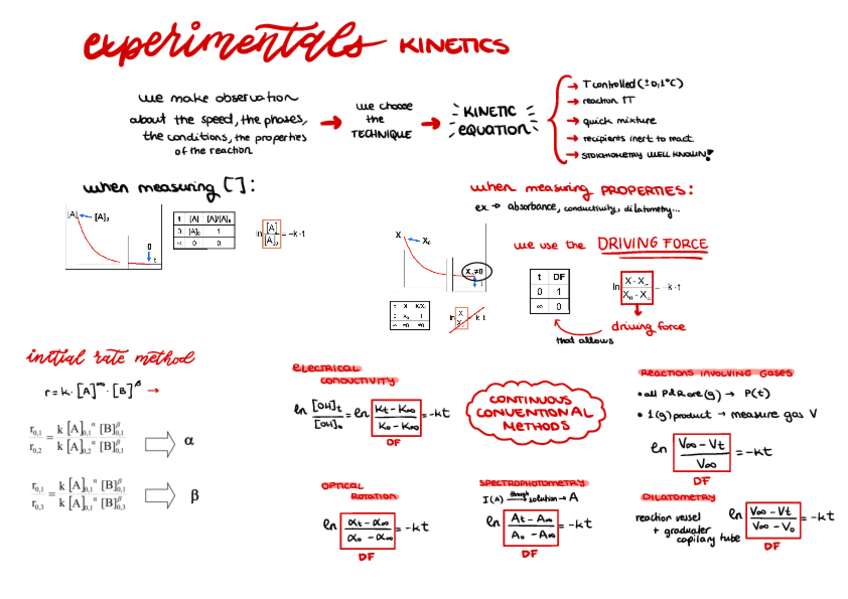 experimentals KINETICS
we make observation
about the speed, the phases,
the conditions, the properties
of the reaction
we choose
the
TECHNIQUE
KINETIC
EQUATION
T controlled (±0,1°C)
reaction TT
quick mixture
recipients inert to react.
STOICHIOMETRY WELL KNOWN!
when measuring []:
[A] [A]₀
0
t
t [A] [A]/[A]₀
0 [A]₀ 1
∞ 0 0
ln [A]/[A]₀ = -k·t
when measuring PROPERTIES:
ex → absorbance, conductivity, dilatometry...
X X₀
X∞≠0
t
t X X/X₀
0 X₀ 1
∞ ≠0 ≠0
ln X/X₀ = -k·t
we use the DRIVING FORCE
t DF
0 1
∞ 0
ln X-X∞/X₀-X∞ = -k·t
driving force
that allows
initial rate method
r = k·[A]^∞·[B]^β →
r₀,₁/r₀,₂ = k [A]₀,₁^α [B]₀,₁^β / k [A]₀,₂^α [B]₀,₁^β ⇒ α
r₀,₁/r₀,₃ = k [A]₀,₁^α [B]₀,₁^β / k [A]₀,₁^α [B]₀,₃^β ⇒ β
ELECTRICAL
CONDUCTIVITY
ln [OH]t/[OH]₀ = ln Kt-K∞/K₀-K∞ = -kt
DF
CONTINUOUS
CONVENTIONAL
METHODS
REACTIONS INVOLVING GASES
• all P&R are (g) → P(t)
• 1(g) product → measure gas V
ln V∞-Vt/V∞ = -kt
DF
OPTICAL
ROTATION
ln αt-α∞/α₀-α∞ = -kt
DF
SPECTROPHOTOMETRY
I(λ) though solution → A
ln At-A∞/A₀-A∞ = -kt
DF
DILATOMETRY
reaction vessel
+ graduater
capilary tube
ln V∞-Vt/V∞-V₀ = -kt
DF